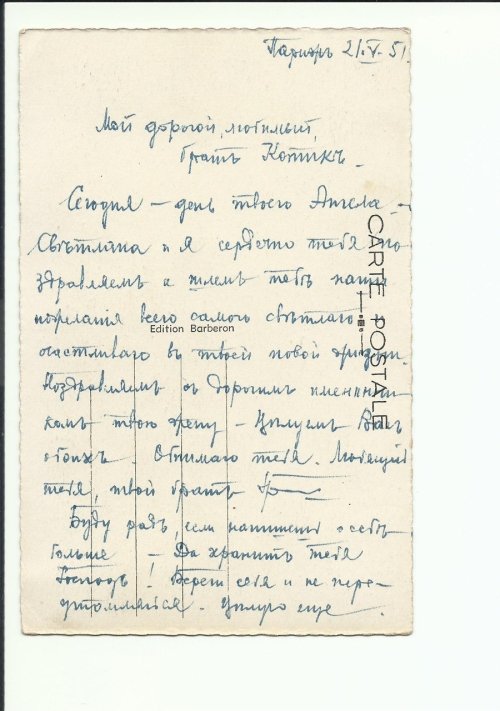 Парижъ 21.V.51
Мой дорогой, любимый,
братъ Котикъ.
Сегодня — день твоего Ангела —
Свѣтлана и я сердечно тебя по
здравляемъ и шлемъ тебѣ наши
пожеланія всего самого свѣтлаго,
счастливаго въ твоей новой жизни.
Поздравляемъ съ дорогимъ именинни
комъ твою жену — Цѣлуемъ Васъ
обоихъ. Обнимаю тебя. Любящій
тебя, твой братъ
Буду радъ, если напишешь о себѣ
больше — Да хранитъ тебя
Господь! Береги себя и не пере-
утомляйся. Цѣлую еще.
Edition Barberon
CARTE POSTALE